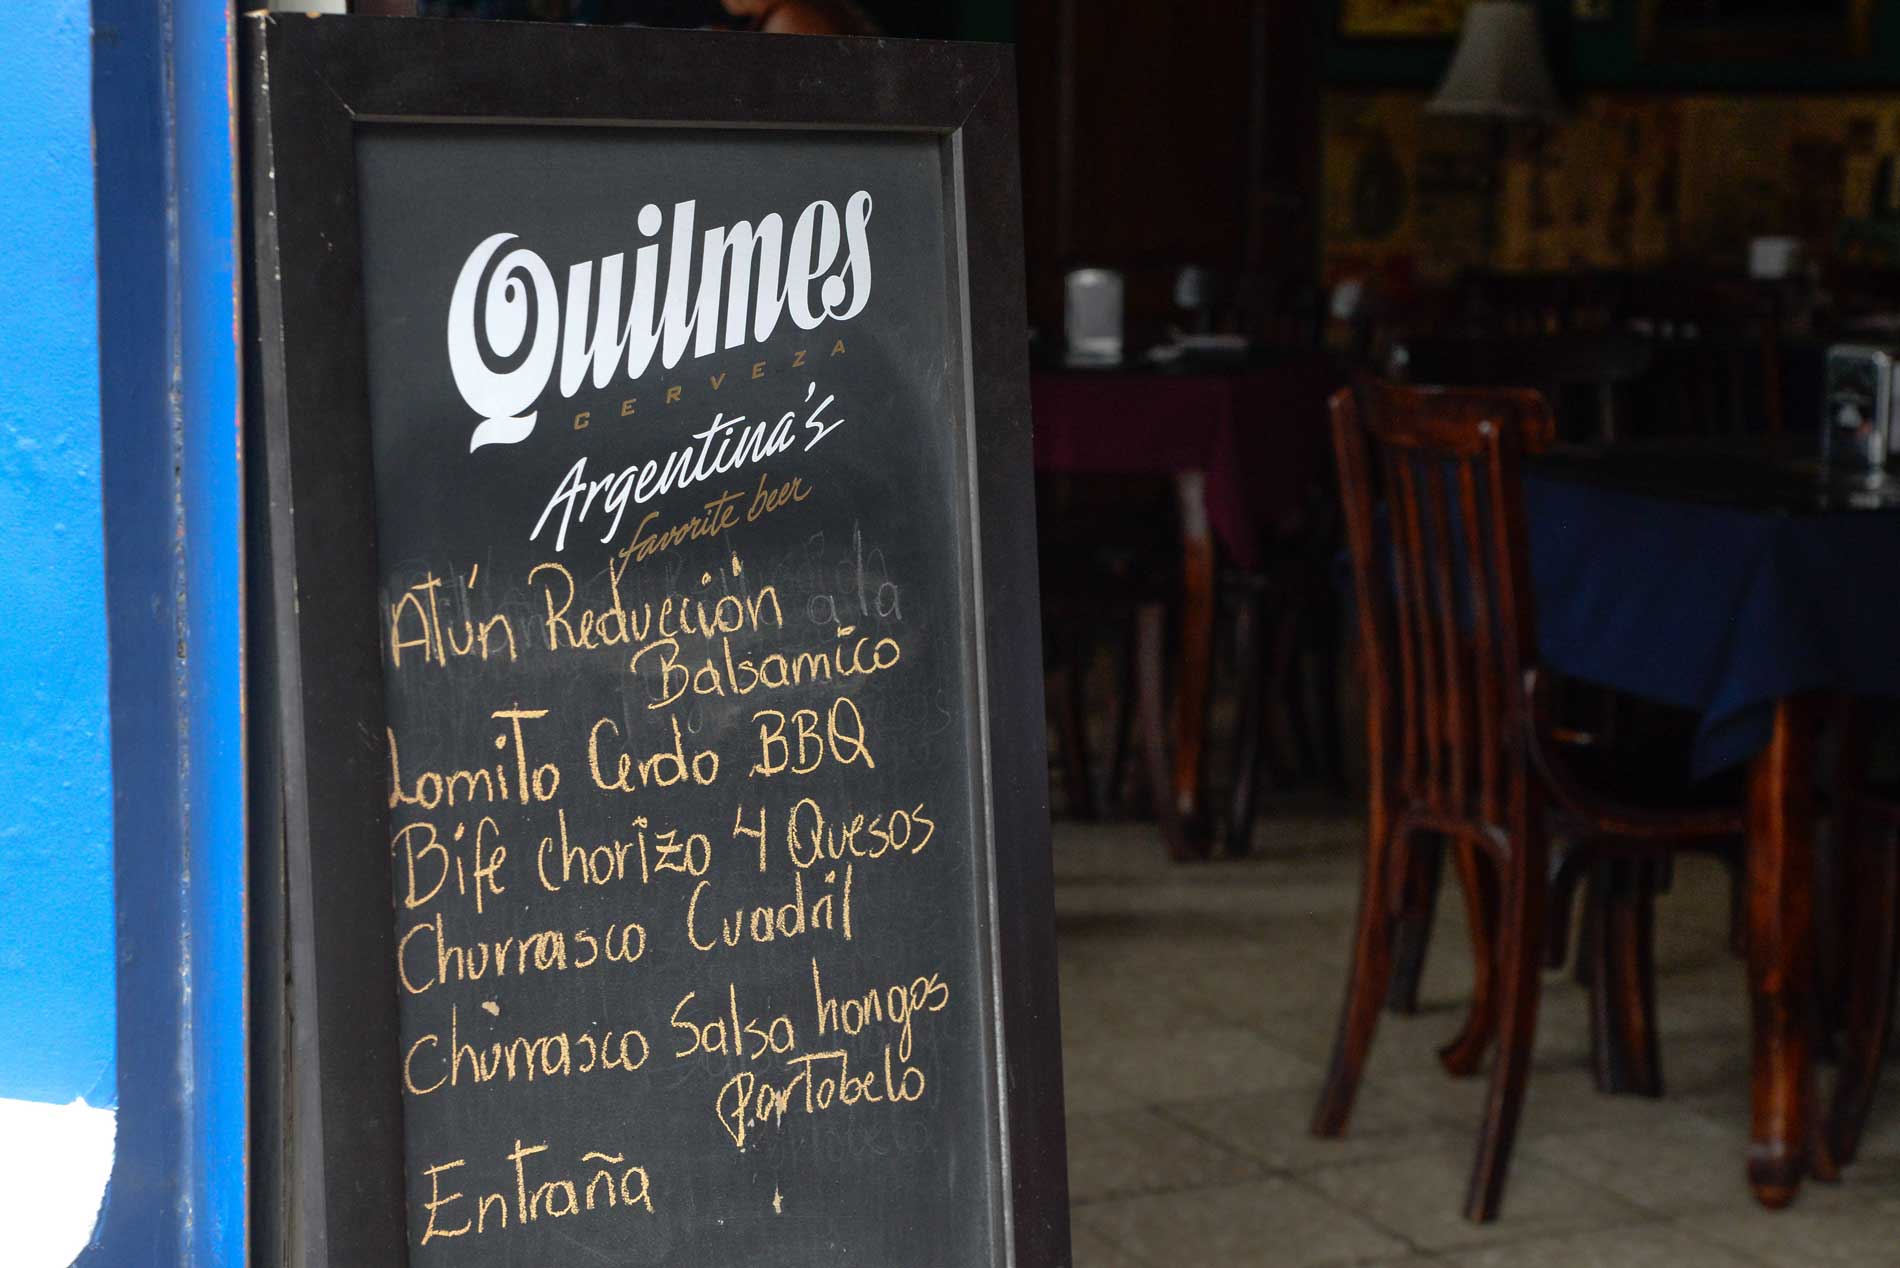 Quilmes
CERVEZA
Argentina's
favorite beer
Atún Reducción
Balsamico
Lomito Cerdo BBQ
Bife chorizo 4 Quesos
Churrasco Cuadril
Churrasco Salsa hongos
Portobelo
Entraña